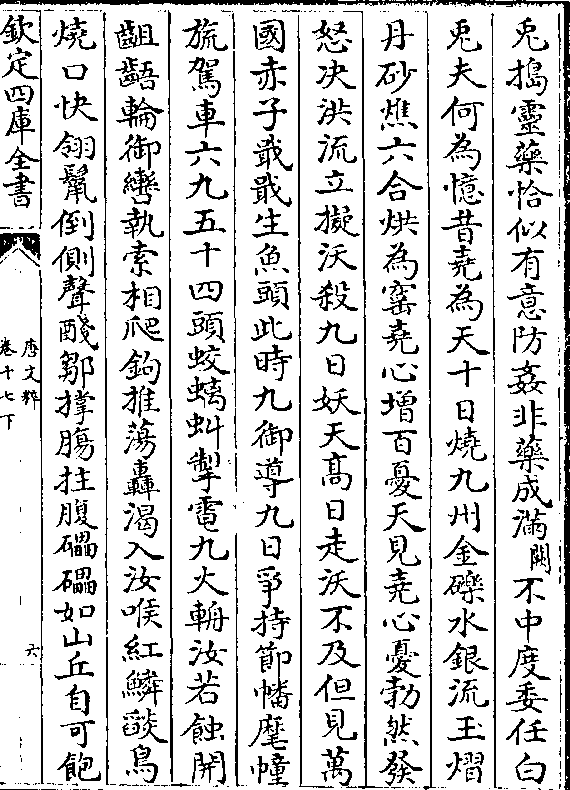 兎搗靈藥恰似有意防姦非藥成滿闕不中度委任白
兎夫何為憶昔堯為天十日燒九州金礫水銀流玉熠
丹砂燋六合烘為窰堯心增百憂天見堯心憂勃然發
怒决洪流立擬沃殺九日妖天髙日走沃不及但見萬
國赤子戢戢生魚頭此時九御導九日爭持節幡麾幢
旒駕車六九五十四頭蛟螭虯掣電九火輈汝若蝕開
齟齬輪御轡執索相爬鉤推蕩轟渇入汝喉紅鱗𦦨鳥
燒口快翎鬣倒側聲醆鄒撑膓拄腹礧磈如山丘自可飽
欽定四庫全書
唐文粹
卷十七下
六